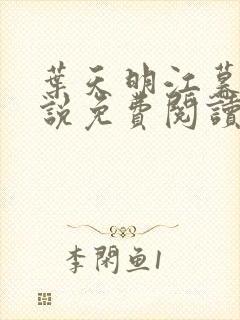 葉天明江慕
說免費閱讀
李閑鱼1